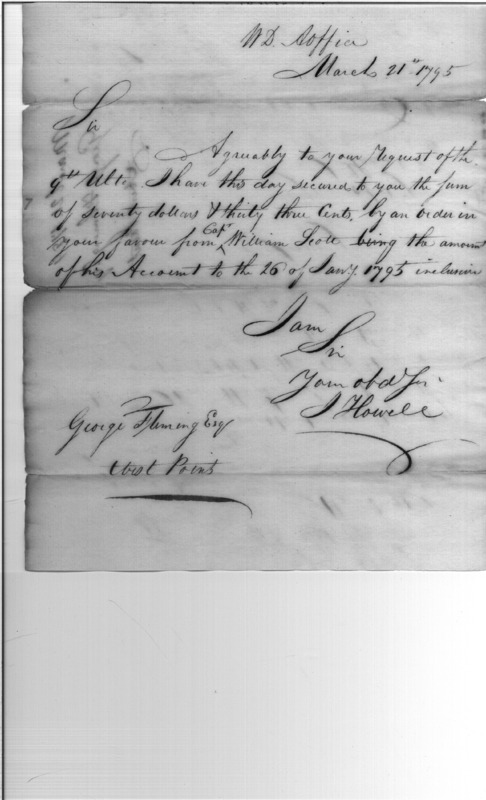 W D. Aoffice
March 21st 1795
Sir
Agreeably to your Request of the
9th Ulto. I have this day secured to you the sum
of seventy dollars & thirty three Cents, by an order in
your favour from Capt William Scott being the amount
of his Account to the 26 of Jany. 1795 inclusive
I am
Sir
Your obed Ser.
J Howell
George Fleming Esqr
West Point